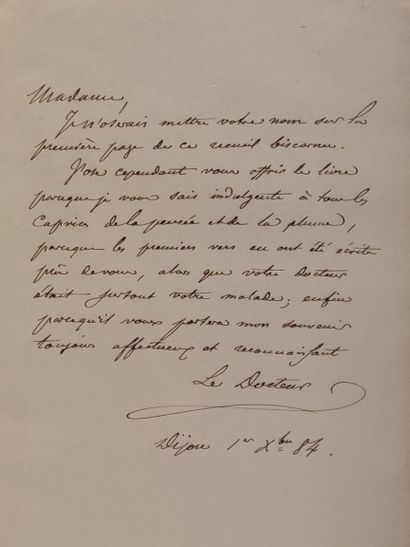 Madame,
Je n'oserais mettre votre nom sur la
première page de ce recueil biscornu.
J'ose cependant vous offrir le livre
parceque je vous sais indulgente à tous les
caprices de la pensée et de la plume,
parceque les premiers vers en ont été écrits
près de vous, alors que votre docteur
était surtout votre malade; enfin
parcequ'il vous portera mon souvenir
toujours affectueux et reconnaissant
Le Docteur
Dijon 1er Xbre 84.